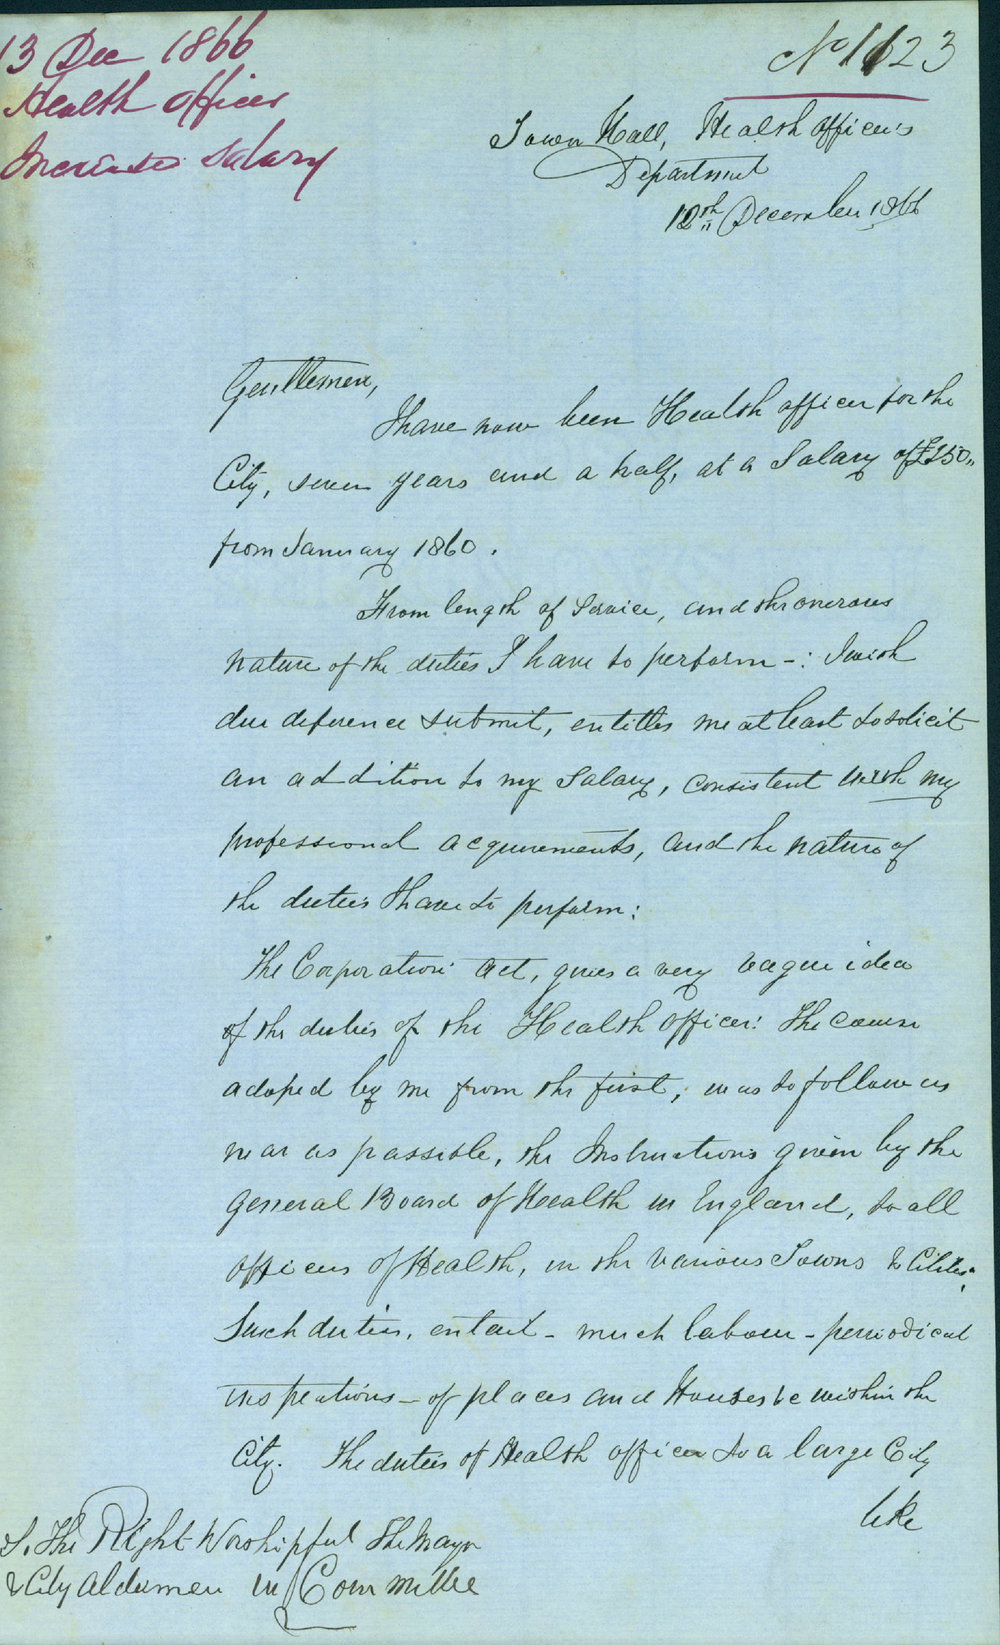 13 Dec 1866
Health officer
Increased Salary
No 1123
Town Hall, Health Officer's
Department
12th December 1866
Gentlemen,
I have now been Health officer for the
City, seven years and a half, at a Salary of £250"
from January 1860.
From length of Service, and the onerous
nature of the duties I have to perform -: I with
due deference submit, entitles me at least to solicit
an addition to my Salary, consistent with my
professional acquirements, and the nature of
the duties I have to perform:
The Corporation Act, gives a very vague idea
of the duties of the Health Officer: The course
adoped by me from the first, was to follow as
near as possible, the Instructions given by the
General Board of Health in England, to all
Officers of Health, in the various Towns & Cities.
Such duties, entail - much labour - periodical
inspections - of places and Houses &c within the
City. The duties of Health officer to a large City
like
To The Right Worshipful The Mayor
& City Aldermen in Committee